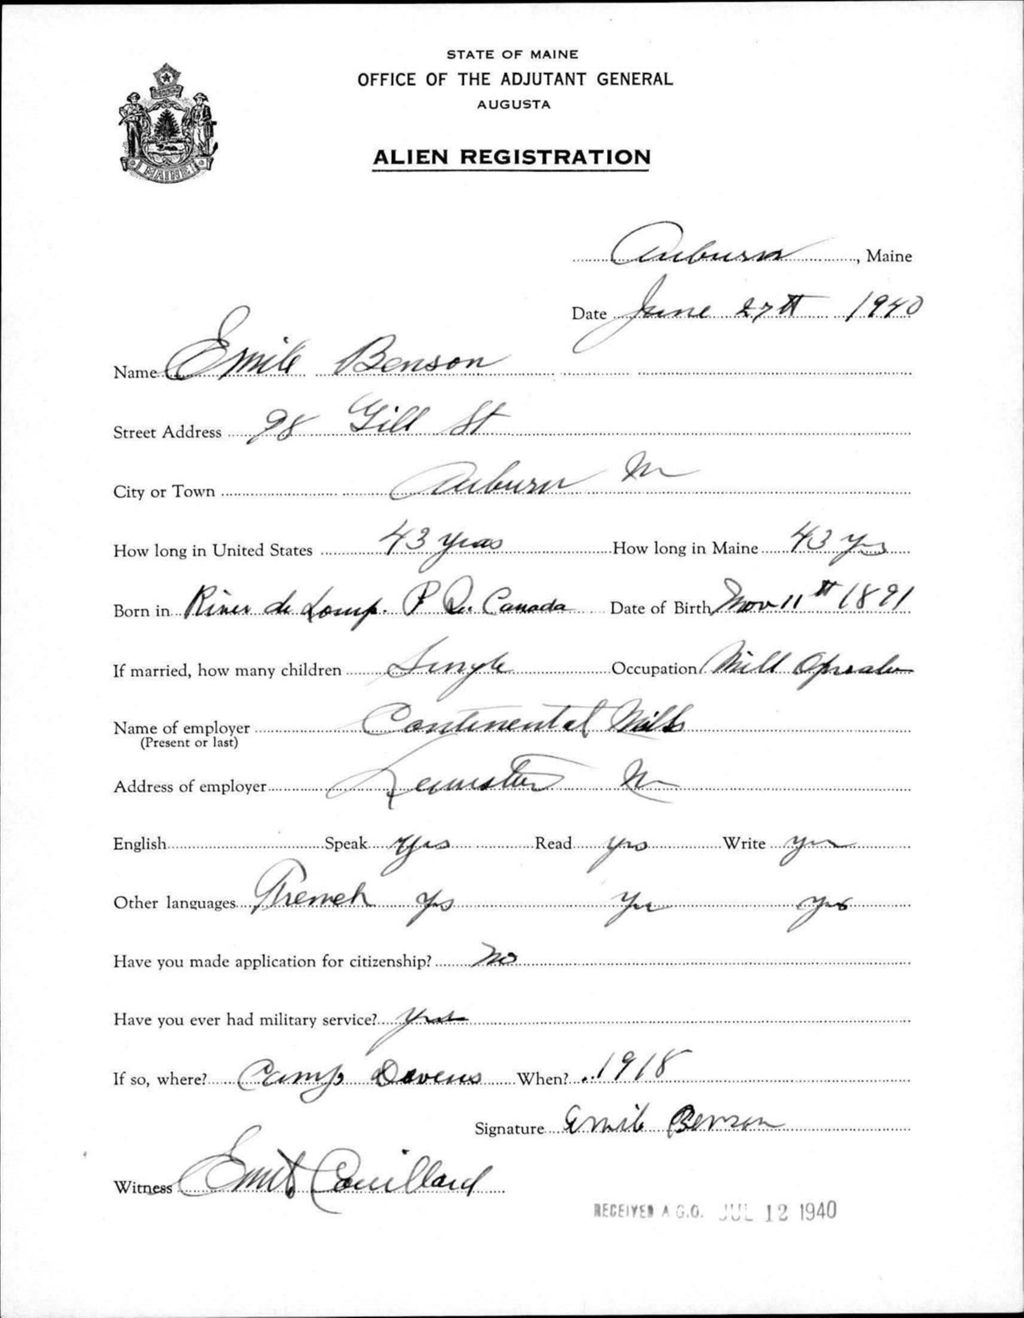 STATE OF MAINE
OFFICE OF THE ADJUTANT GENERAL
AUGUSTA
ALIEN REGISTRATION
MAINE
Auburn, Maine
Date June 27th 1940
Name Emile Benson
Street Address 98 Gill St
City or Town Auburn Me
How long in United States 43 years How long in Maine 43 yrs
Born in River de Loup. P Q. Canada Date of Birth Nov 11th 1891
If married, how many children Single Occupation Mill
Name of employer Continental Mills
(Present or last)
Address of employer Me
English Speak Yes Read yes Write yes
Other languages French Yes Yes Yes
Have you made application for citizenship? No
Have you ever had military service? Yes
If so, where? Camp Devens When? 1918
Signature Emile Benson
Witness Couillard
RECEIVED A.G.O. JUL 12 1940